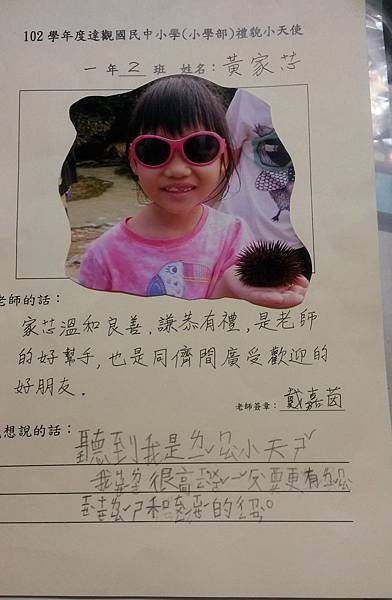 102學年度達觀國民中小學(小學部)禮貌小天使
一年2班 姓名:黃家芯
老師的話:
家芯溫和良善,謙恭有禮,是老師
的好幫手,也是同儕間廣受歡迎的
好朋友.
老師簽章:戴嘉茵
想說的話:
聽到我是ㄌㄧˇㄇㄠˋ小天ㄕˇ
我 很高 一 更有
和 的